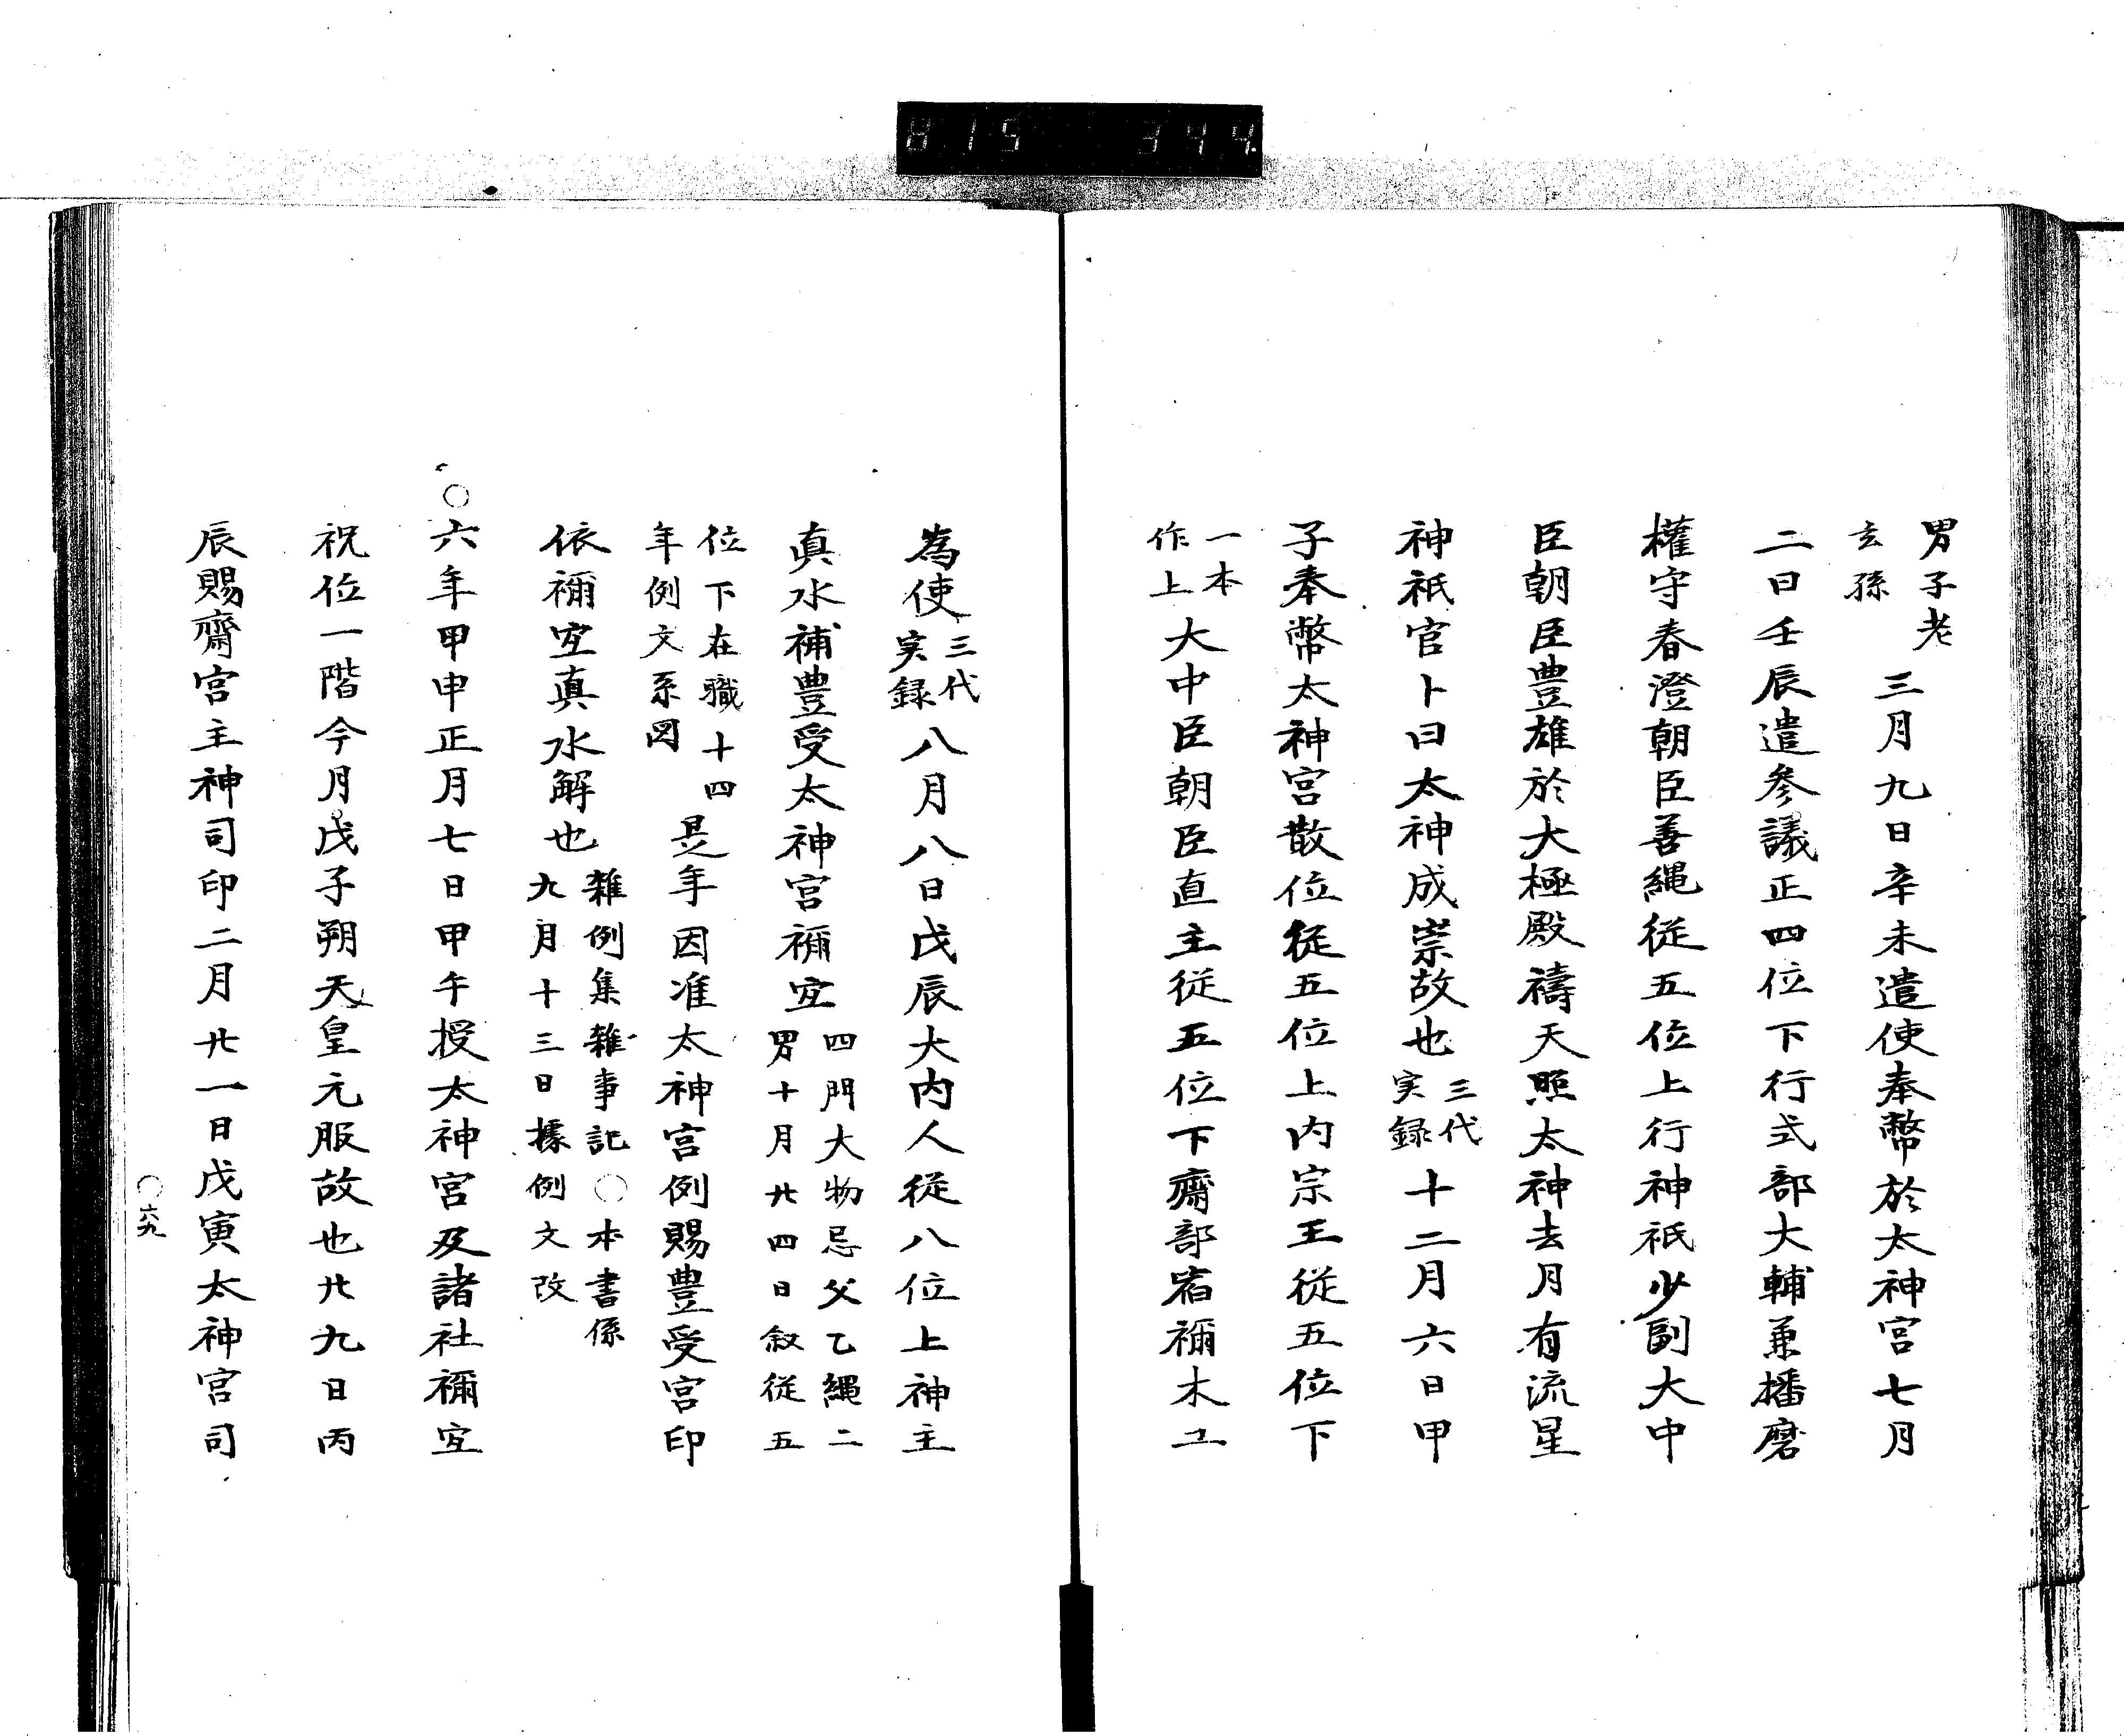 815 344
男子老
玄孫
三月九日辛未遣使奉幣於太神宮七月
二日壬辰遣參議正四位下行式部大輔兼播磨
權守春澄朝臣善繩従五位上行神祇少副大中
臣朝臣豊雄於大極殿禱天照太神去月有流星
神祇官卜曰太神成崇故也
三代
実録
十二月六日甲
子奉幣太神宮散位従五位上内宗王従五位下
一本
作上
大中臣朝臣直主従五位下齋部宿禰木工
為使
三代
実録
八月八日戊辰大内人従八位上神主
真水補豊受太神宮禰宜
四門大物忌父乙繩二
男十月廿四日叙従五
位下在職十四
年例文系図
是年因准太神宮例賜豊受宮印
依禰宜真水解也
雑例集雑事記〇本書係
九月十三日據例文改
〇六年甲申正月七日甲午授太神宮及諸社禰宜
祝位一階今月戊子朔天皇元服故也廿九日丙
辰賜齋宮主神司印二月廿一日戊寅太神宮司
〇六九